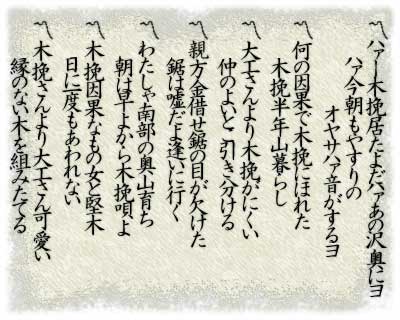 〽ハアー木挽居たよだハアあの沢奥にヨ
ハア今朝もやすりの
オヤサハア音がするヨ
〽何の因果で木挽にほれた
木挽半年山暮らし
〽大工さんより木挽がにくい
仲のよいと引き分ける
〽親方金借せ鋸の目が欠けた
鋸は嘘だよ逢いに行く
〽わたしゃ南部の奥山育ち
朝は早よから木挽唄よ
〽木挽因果なもの女と堅木
日に一度もあわれない
〽木挽さんより大工さん可愛い
縁のない木を組みたてる